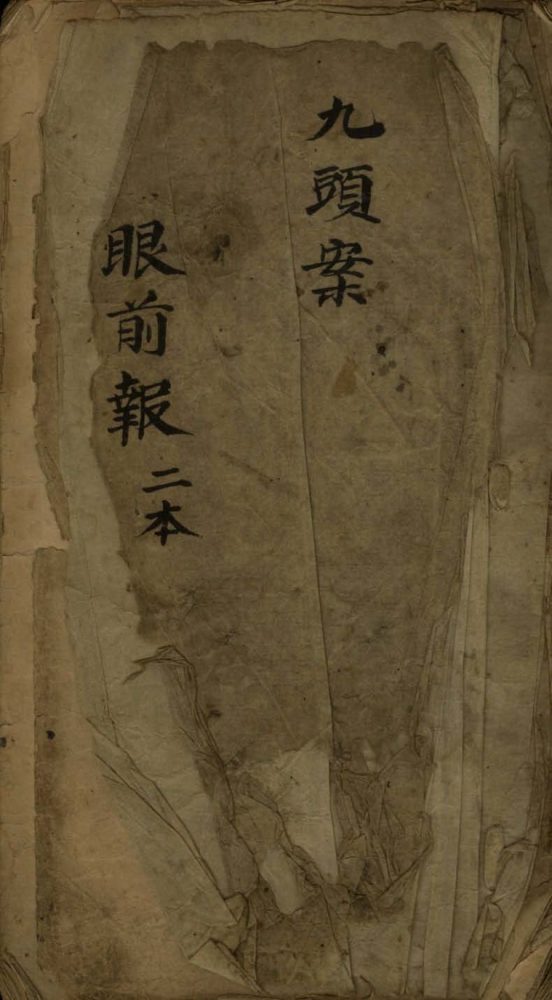 九頭案
眼前報二本